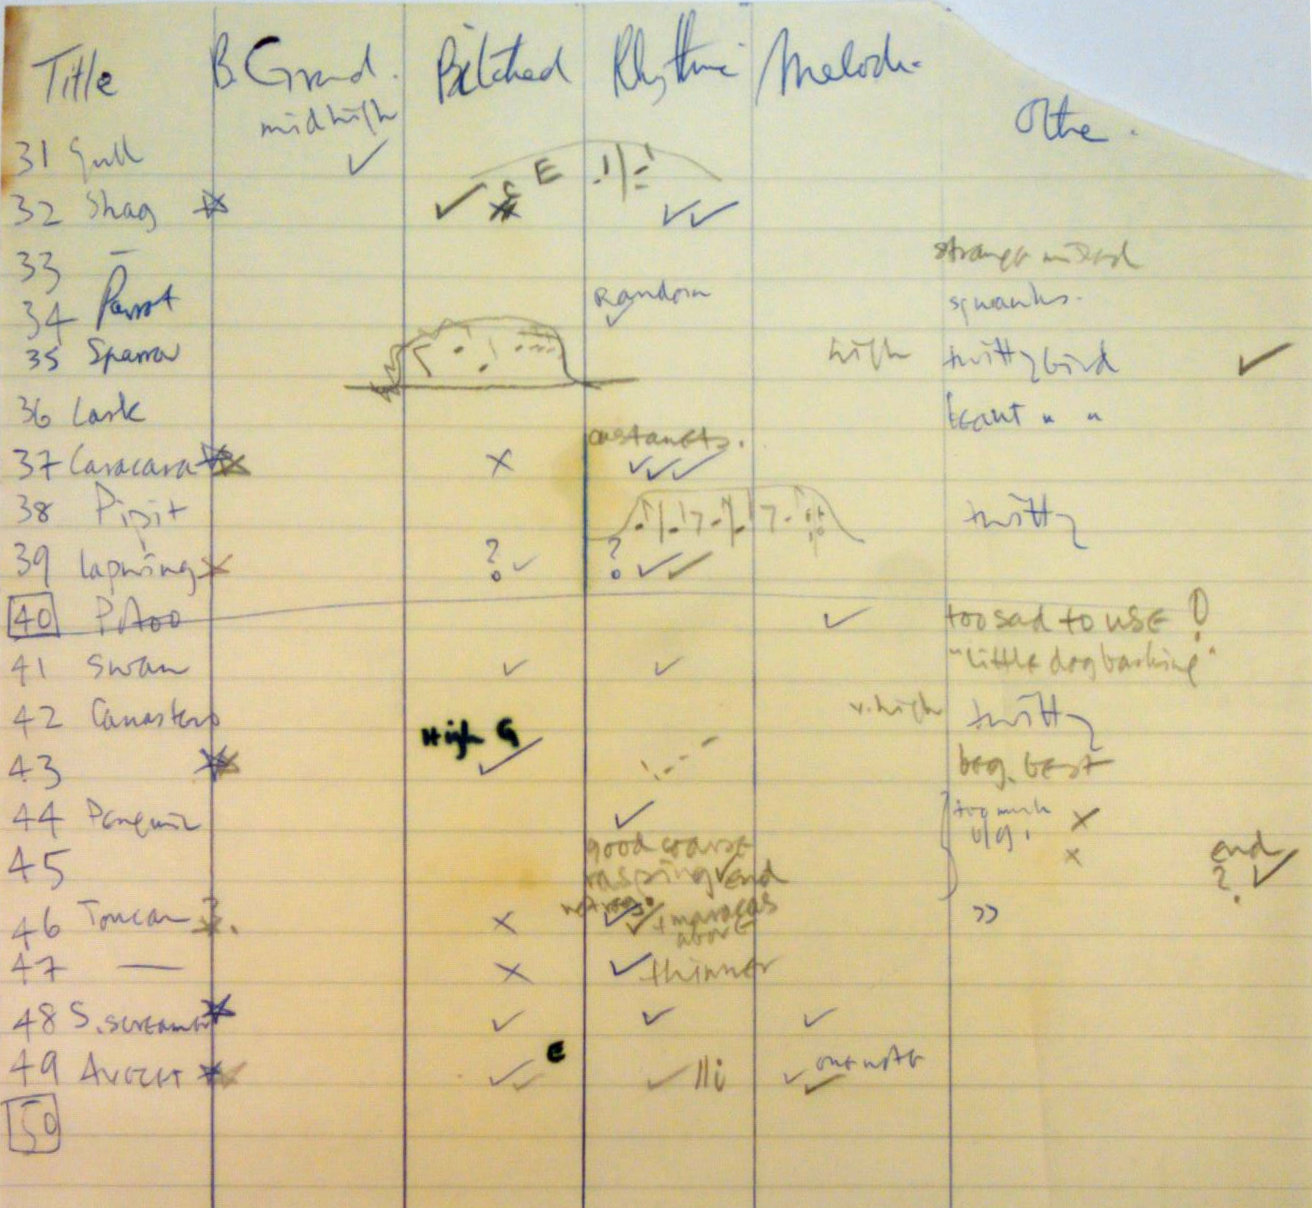 Title B. Grand. Pitched Rhythmic Melodic Other.
31 Gull midhigh ✓
32 Shag ✓ E ✓✓
33 – strange mixed
34 Parrot random ✓ squawks.
35 Sparrow high twitty bird ✓
36 Lark " "
37 Caracara × castanets. ✓✓✓
38 Pipit twitty
39 Lapwing × ? ✓ ? ✓✓
40 Potoo ✓ too sad to use!
41 Swan ✓ ✓ "little dog barking"
42 v. high twitty
43 High G ✓ beg. best
44 Penguin ✓ too much ×
45 good coarse rasping ✓ end × end ? ✓
46 Toucan × ✓ ✓ + maracas above "
47 — × ✓ thinner
48 S. screamer ✓ ✓ ✓
49 Avocet ✓✓ E ✓ ✓✓ one note
50